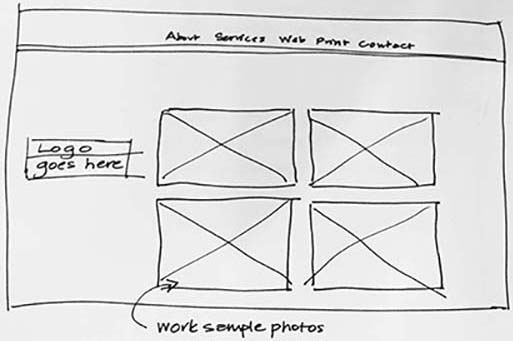 About Services Web Print Contact
Logo
goes here
work sample photos